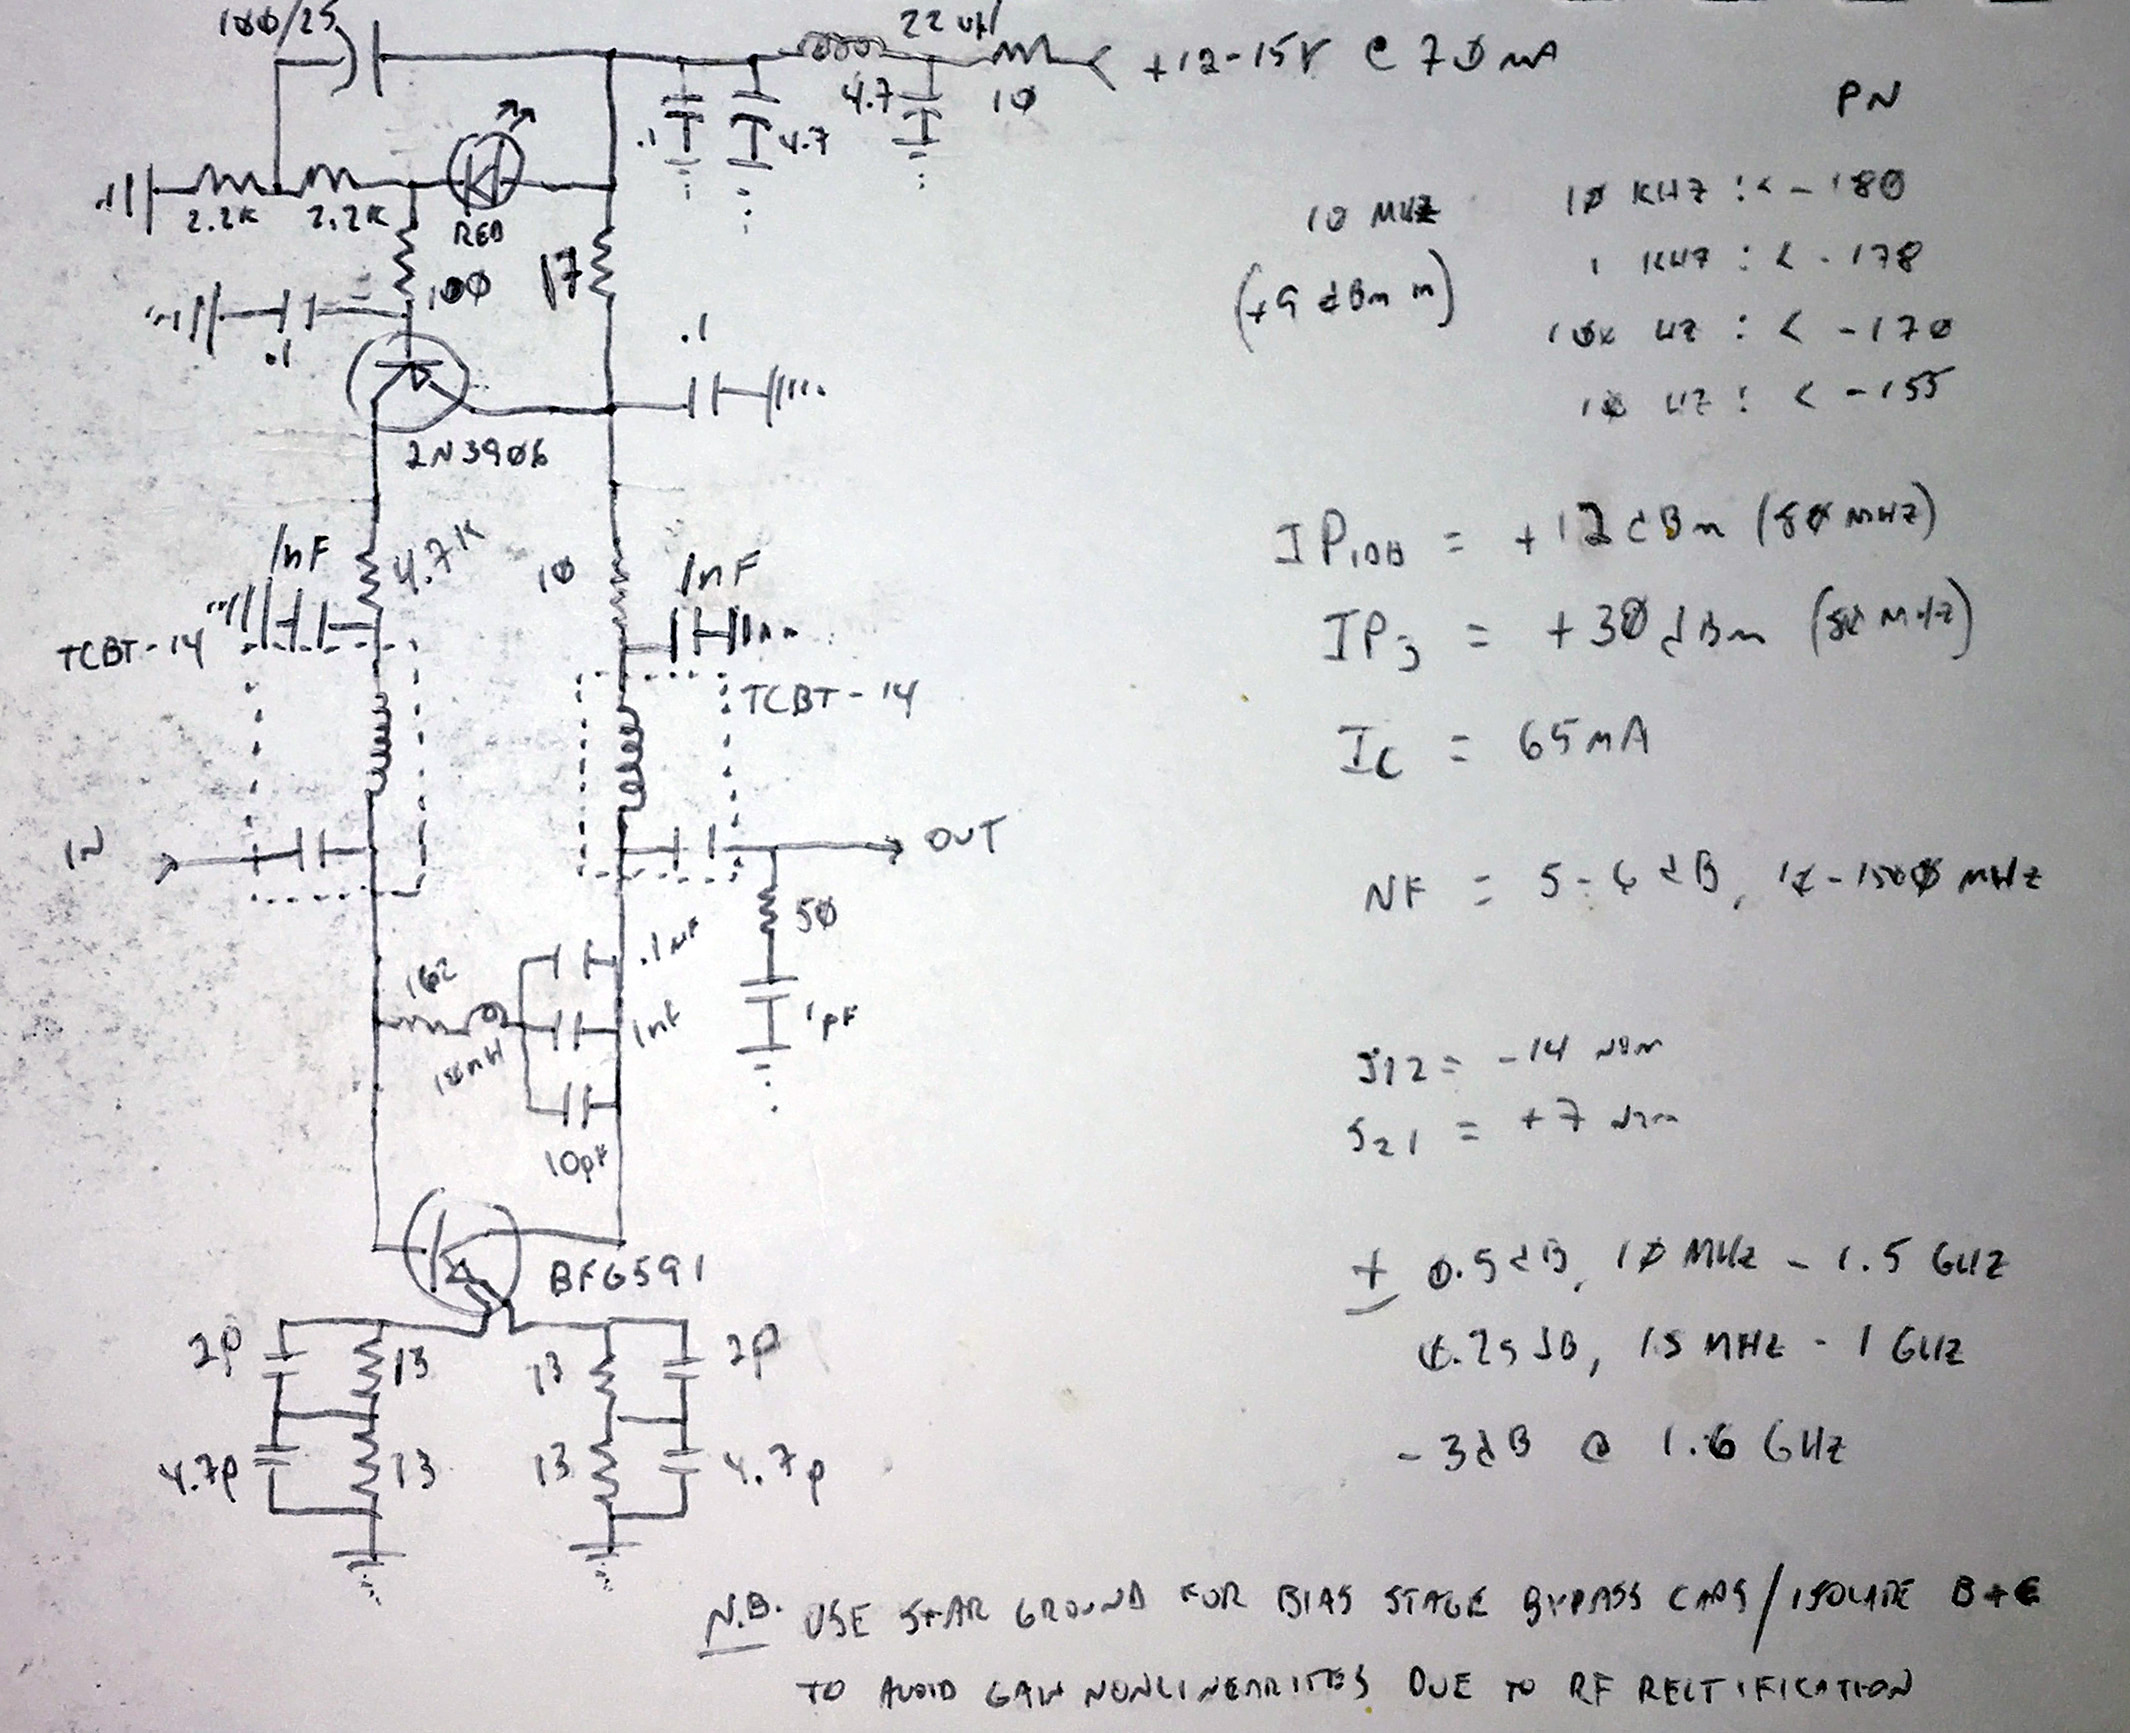 100/25
22 uH
+12-15V @ 7Ø mA
4.7
1Ø
.1
4.7
2.2K
2.2K
RED
1ØØ
17
.1
.1
2N39Ø6
1nF
4.7K
1Ø
1nF
TCBT-14
TCBT-14
IN
OUT
5Ø
.1uF
162
1nF
1pF
10pF
BFG591
2P
13
13
2P
4.7P
13
13
4.7P
PN
1Ø MHZ
(+9 dBm in)
1Ø KHZ : < -18Ø
1 KHZ : < -178
1ØØ HZ : < -17Ø
1Ø HZ : < -155
IP1DB = +12 dBm (8Ø MHZ)
IP3 = +3Ø dBm (8Ø MHZ)
IC = 65 mA
NF = 5-6 dB, 1Ø-15ØØ MHZ
S12 = -14 NOM
S21 = +7 NOM
± Ø.5 dB, 1Ø MHZ - 1.5 GHZ
Ø.25 dB, 15 MHZ - 1 GHZ
-3 dB @ 1.6 GHZ
N.B. USE STAR GROUND FOR BIAS STAGE BYPASS CAPS / ISOLATE B+E
TO AVOID GAIN NONLINEARITIES DUE TO RF RECTIFICATION